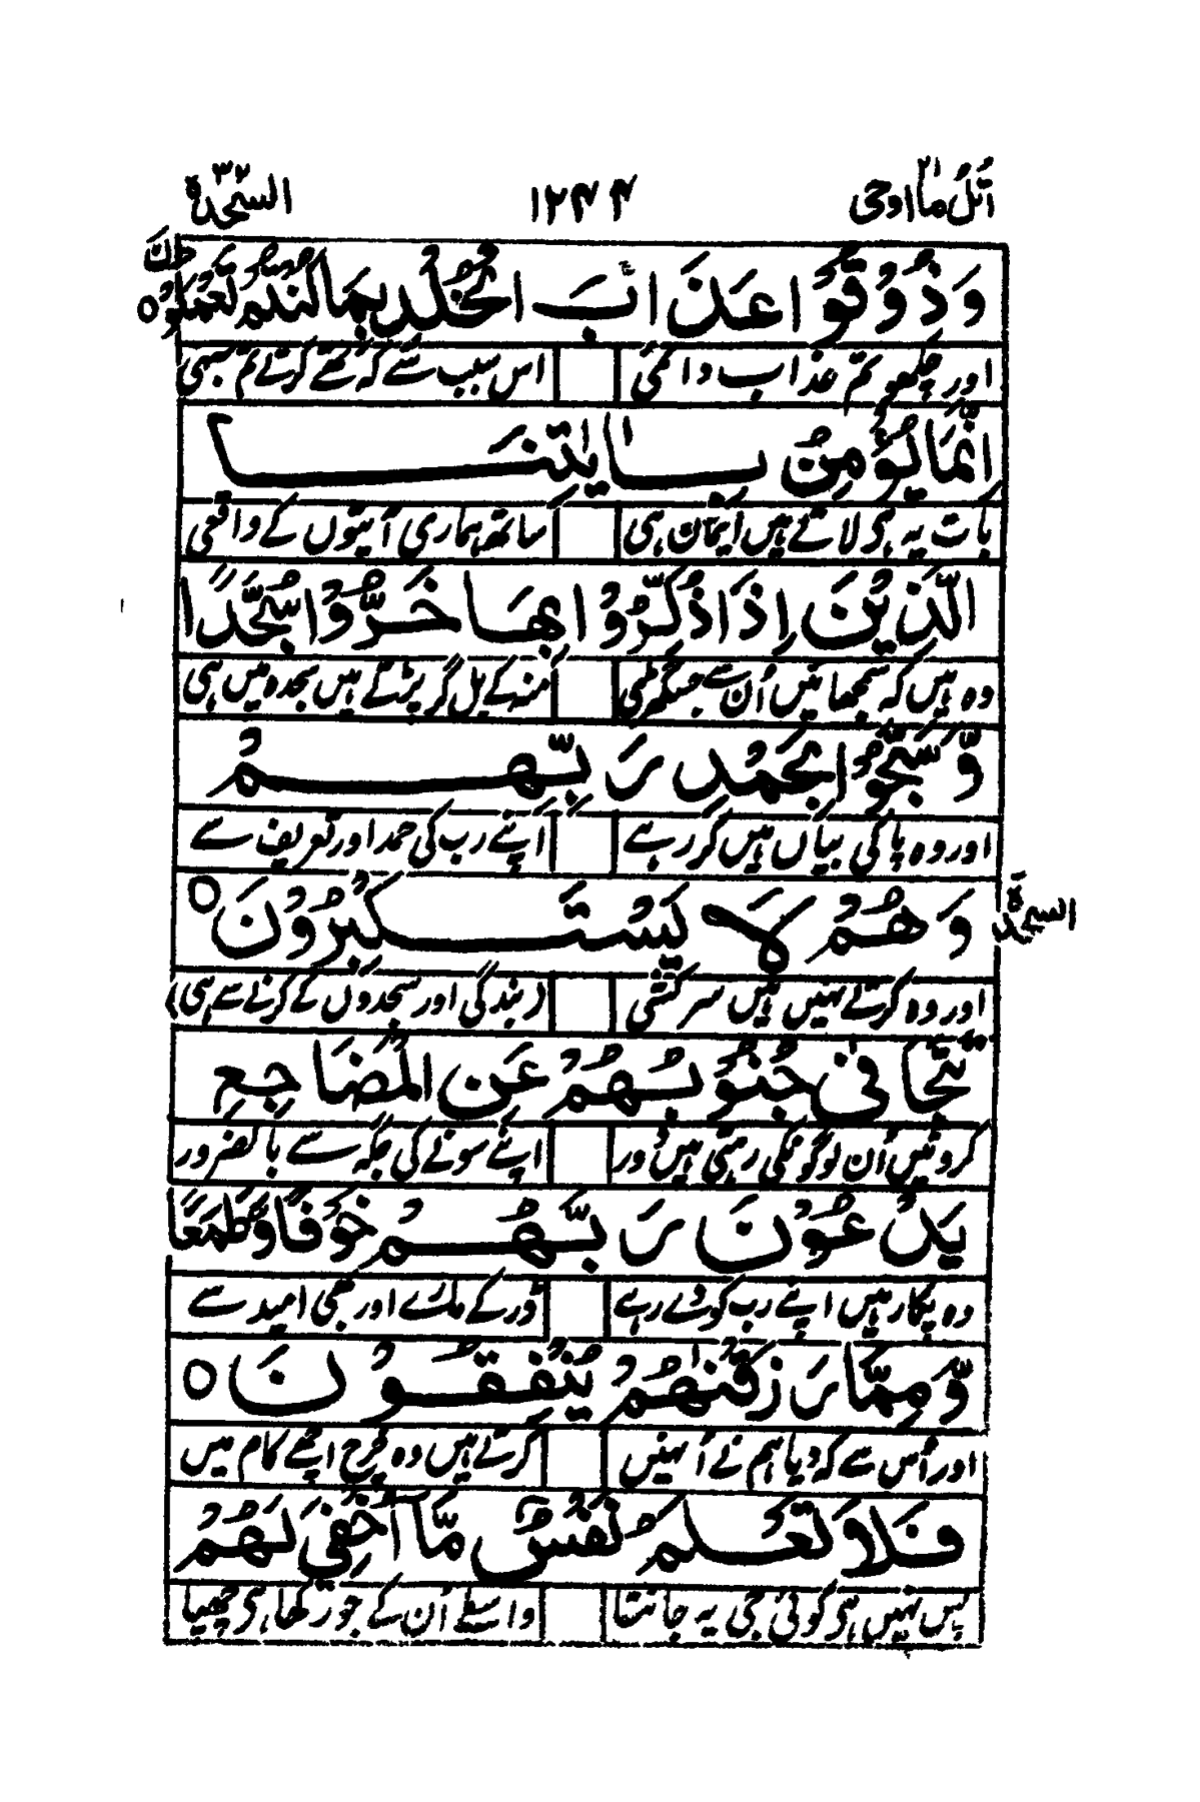 اتل ما اوحی ۲۱ ۱۲۴۴ السجدة ۳۲
وَذُوْقُوْا عَذَابَ الْخُلْدِ بِمَا كُنْتُمْ تَعْمَلُوْنَ ○
اور چکھو تم عذاب دائمی اس سبب سے کہ تھے کرتے تم سبھی
اِنَّمَا يُؤْمِنُ بِاٰيٰتِنَا
بات یہ ہی لاتے ہیں ایمان ہی ساتھ ہماری آیتوں کے واقعی
الَّذِيْنَ اِذَا ذُكِّرُوْا بِهَا خَرُّوْا سُجَّدًا
وہ ہیں کہ سمجھائیں اُن سے جس گھڑی منہ کے بل گر پڑتے ہیں سجدہ میں ہی
وَّسَبَّحُوْا بِحَمْدِ رَبِّهِمْ
اور وہ پاکی بیاں ہیں کر رہے اپنے رب کی حمد اور تعریف سے
وَهُمْ لَا يَسْتَكْبِرُوْنَ ○ السجدة
اور وہ کرتے نہیں ہیں سرکشی (بندگی اور سجدوں کے کرنے سے ہی)
تَتَجَافٰى جُنُوْبُهُمْ عَنِ الْمَضَاجِعِ
کروٹیں اُن لوگوں کی رہتی ہیں دور اپنے سونے کی جگہ سے بالضرور
يَدْعُوْنَ رَبَّهُمْ خَوْفًا وَّطَمَعًا
وہ پکار ہیں اپنے رب کو دے رہے ڈور کے مارے اور بھی امید سے
وَّمِمَّا رَزَقْنٰهُمْ يُنْفِقُوْنَ ○
اور اُس سے کہ دیا ہم نے اُنہیں کرتے ہیں وہ خرچ اچھے کام میں
فَلَا تَعْلَمُ نَفْسٌ مَّا اُخْفِيَ لَهُمْ
پس نہیں ہی کوئی جی یہ جانتا واسطے اُن کے جو رکھا ہی چھپا